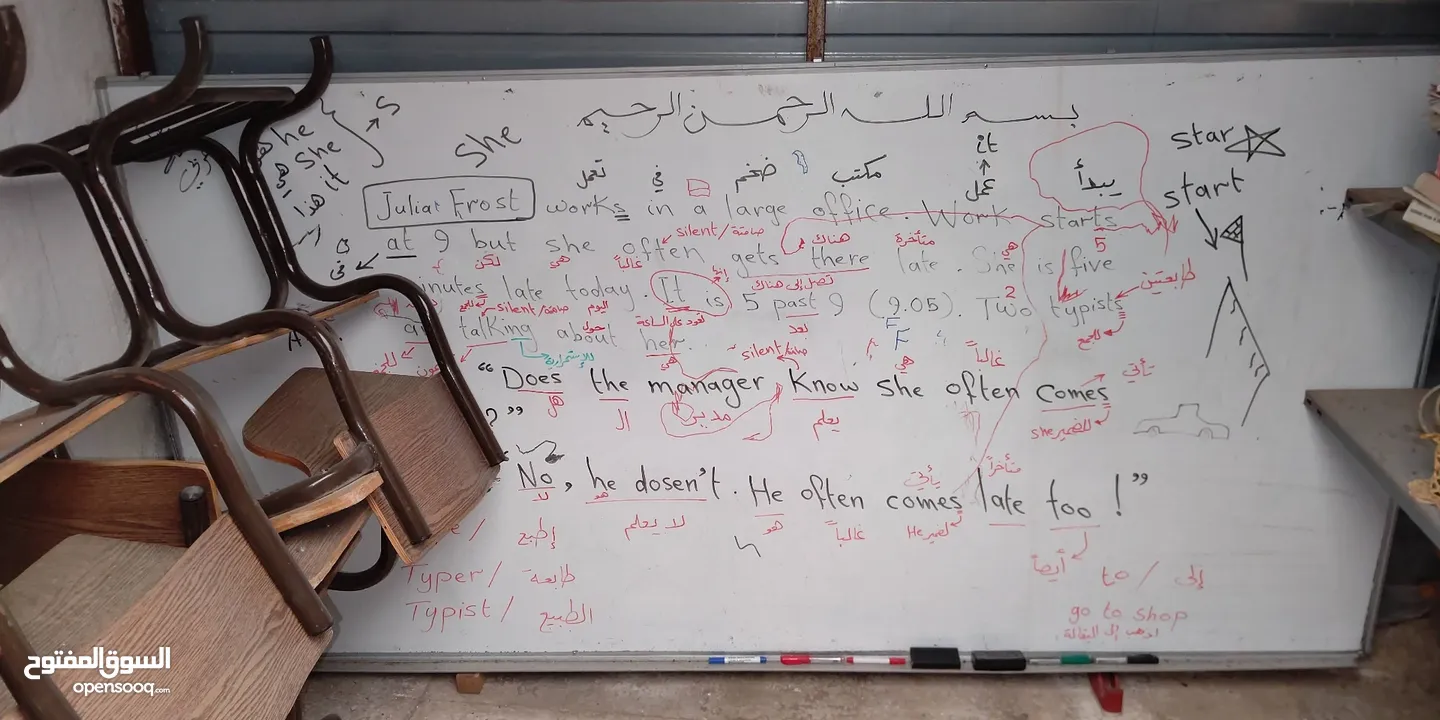 بسم الله الرحمن الرحيم
he
she
هذا it
s
she
it
star
start
يبدأ
تعمل في ضخم مكتب عمل
Julia Frost works in a large office. Work starts
silent/صامتة هناك متأخرة هي 5
at 9 but she often gets there late. She is five
في لكن هي غالباً تصل إلى هناك إنها 2 طابعتين
late today. It is 5 past 9 (9.05). Two typists
silent/صامتة اليوم بعد للجمع
talking about her.
حول للإستمرارية هي silent/صامتة هي غالباً تأتي
"Does the manager know she often comes
?"
هل ال مدير يعلم للضمير she
No, he dosen't. He often comes late too!"
لا هو لا يعلم هو غالباً يأتي He متأخراً أيضاً
إطبع
Typer/ طابعة
Typist/ الطبيع
to/ إلى
go to shop
اذهب إلى البقالة
السوق المفتوح
opensooq.com